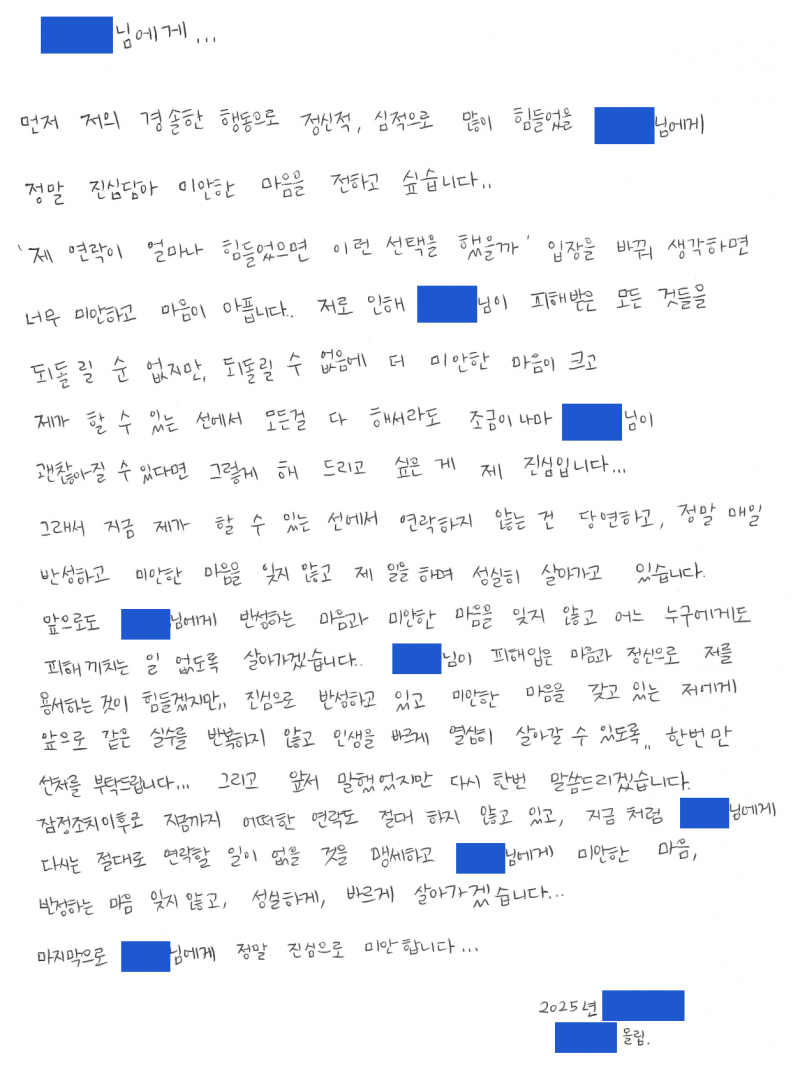 님에게...
먼저 저의 경솔한 행동으로 정신적, 심적으로 많이 힘들었을 님에게
정말 진심담아 미안한 마음을 전하고 싶습니다..
'제 연락이 얼마나 힘들었으면 이런 선택을 했을까' 입장을 바꿔 생각하면
너무 미안하고 마음이 아픕니다.. 저로 인해 님이 피해받은 모든 것들을
되돌릴 순 없지만, 되돌릴 수 없음에 더 미안한 마음이 크고
제가 할 수 있는 선에서 모든걸 다 해서라도 조금이나마 님이
괜찮아질 수 있다면 그렇게 해 드리고 싶은 게 제 진심입니다...
그래서 지금 제가 할 수 있는 선에서 연락하지 않는 건 당연하고, 정말 매일
반성하고 미안한 마음을 잊지 않고 제 일을 하며 성실히 살아가고 있습니다.
앞으로도 님에게 반성하는 마음과 미안한 마음을 잊지 않고 어느 누구에게도
피해끼치는 일 없도록 살아가겠습니다.. 님이 피해입은 마음과 정신으로 저를
용서하는 것이 힘들겠지만,, 진심으로 반성하고 있고 미안한 마음을 갖고 있는 저에게
앞으로 같은 실수를 반복하지 않고 인생을 바르게 열심히 살아갈 수 있도록,, 한번만
선처를 부탁드립니다... 그리고 앞서 말했었지만 다시 한번 말씀드리겠습니다.
잠정조치이후로 지금까지 어떠한 연락도 절대 하지 않고 있고, 지금 처럼 님에게
다시는 절대로 연락할 일이 없을 것을 맹세하고 님에게 미안한 마음,
반성하는 마음 잊지 않고, 성실하게, 바르게 살아가겠습니다...
마지막으로 님에게 정말 진심으로 미안합니다...
2025년
올림.